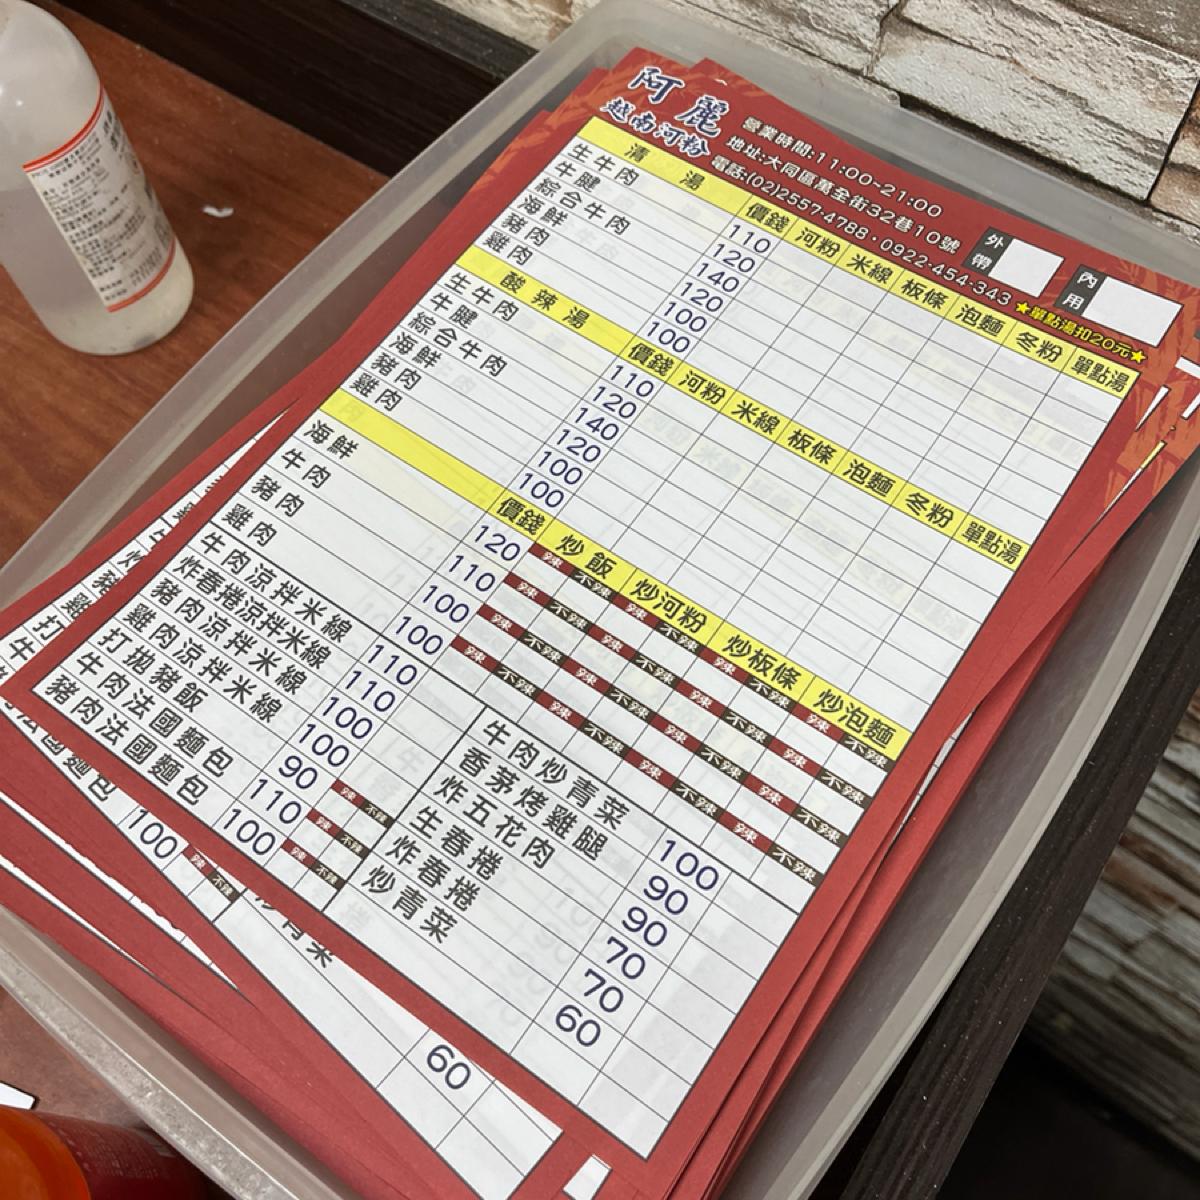 阿麗
越南河粉
營業時間:11:00~21:00
地址:大同區萬全街32巷10號
電話:(02)2557-4788・0922-454-343
外帶
內用
★單點湯扣20元★
清湯 價錢 河粉 米線 板條 泡麵 冬粉 單點湯
生牛肉 110
牛腱 120
綜合牛肉 140
海鮮 120
豬肉 100
雞肉 100
酸辣湯 價錢 河粉 米線 板條 泡麵 冬粉 單點湯
生牛肉 110
牛腱 120
綜合牛肉 140
海鮮 120
豬肉 100
雞肉 100
價錢 炒飯 炒河粉 炒板條 炒泡麵
海鮮 120 辣 不辣 辣 不辣 辣 不辣 辣 不辣
牛肉 110 辣 不辣 辣 不辣 辣 不辣 辣 不辣
豬肉 100 辣 不辣 辣 不辣 辣 不辣 辣 不辣
雞肉 100 辣 不辣 辣 不辣 辣 不辣 辣 不辣
牛肉涼拌米線 110 牛肉炒青菜 100
炸春捲涼拌米線 110 香茅烤雞腿 90
豬肉涼拌米線 100 炸五花肉 90
雞肉涼拌米線 100 生春捲 70
打拋豬飯 90 炸春捲 70
牛肉法國麵包 110 辣 不辣 炒青菜 60
豬肉法國麵包 100 辣 不辣
100 辣 不辣
60